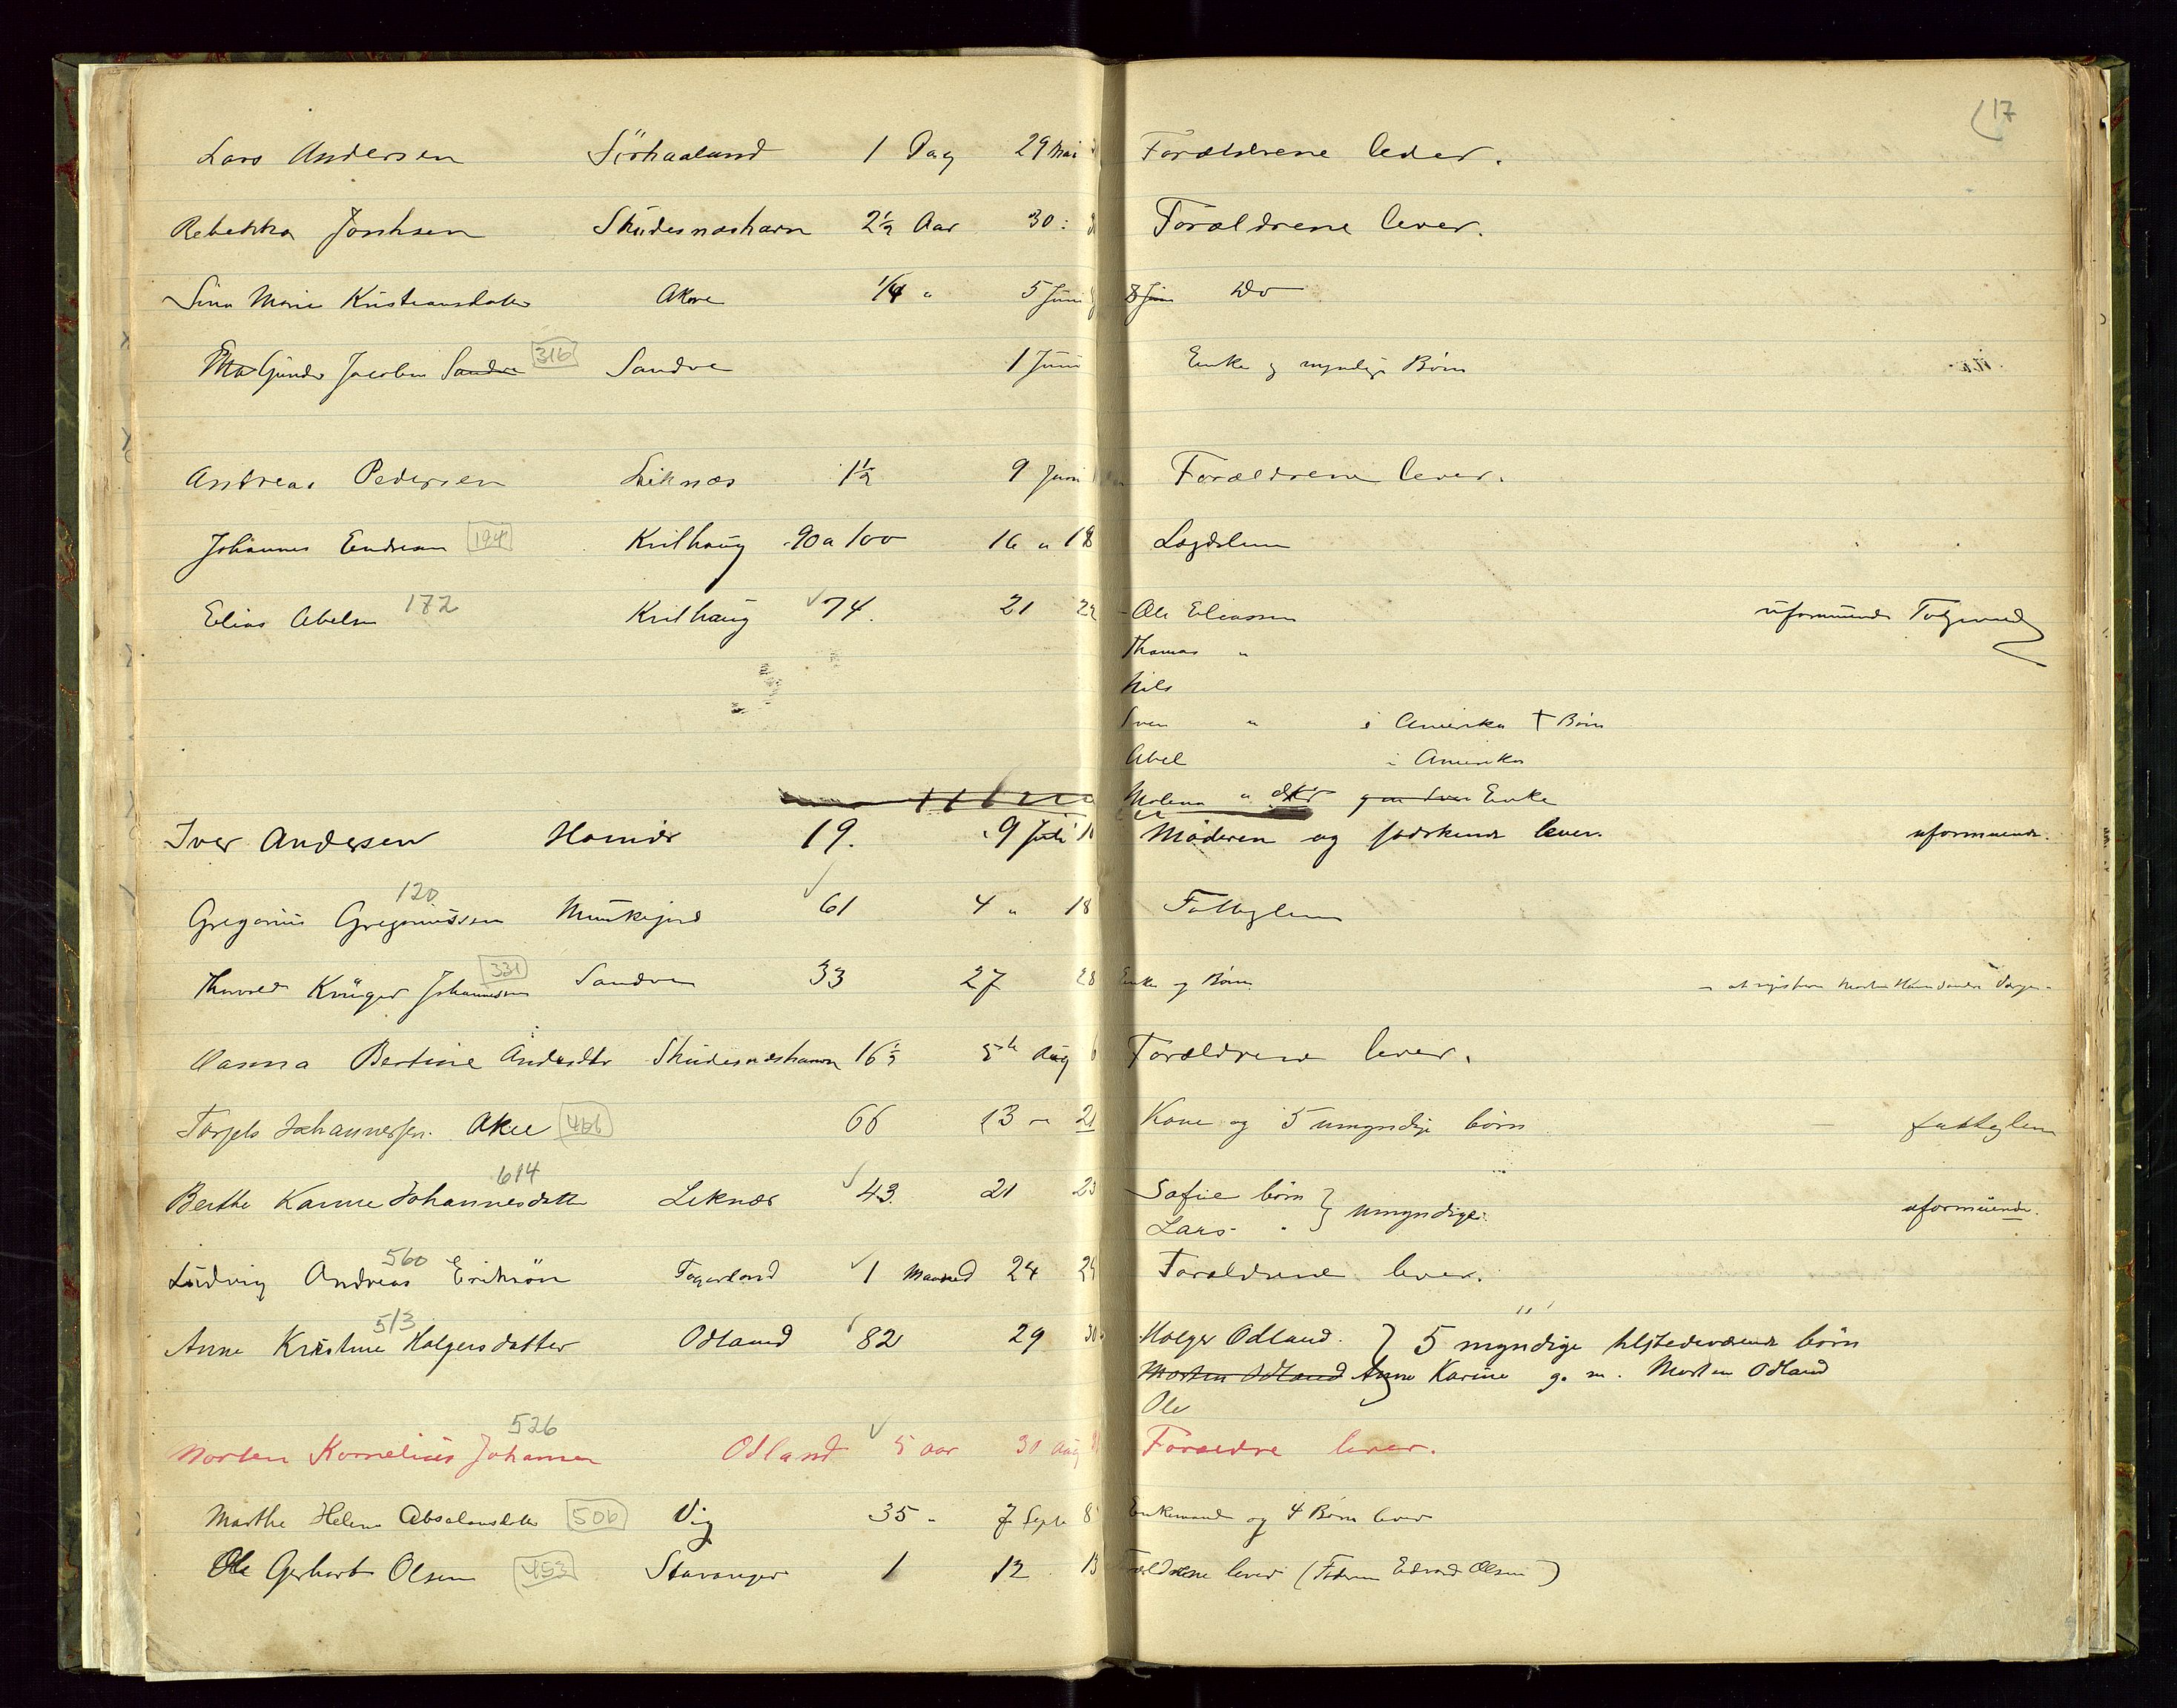 17
Lars Andersen Sørhaaland 1 Dag 29 Mai Forældrene lever.
Rebekka Jonhsen Skudesneshavn 2½ Aar 30 Forældrene lever.
Sina Marie Kristiansdatter Akre ¼ " 5 Juni 8 Juni Do
Gunder Jacobsen Sandve 316 Sandve 1 Juni Enke og myndige Børn
Andreas Pedersen Liknes 1½ 9 Juni Forældrene lever.
Johannes Endresen 194 Kvilhaug 90 a 100 16 " 18 Lægdslem
Elias Abelsen 172 Kvilhaug 74. 21 22 Ole Eliassen uformuende
Thomas "
Nils
Sven " i Amerika † Børn
Abel i Amerika
Malena " dtr Enke
Iver Andersen 19. 9 Juli Moderen og søskende lever. uformuende.
Gregorius Gregoriussen 120 Munkejord 61 4 " 18 Fattiglem
Krüger Johannessen 331 Sandve 33 27 28 Enke og Børn
Hanna Bertine Andersdtr Skudesneshavn 16½ 5te Aug 6 Forældrene lever.
Torgels Johannessen. Akre 466 66 13 – 21 Kone og 5 umyndige børn fattiglem
Berthe Karine Johannesdatter 614 Liknes 43. 21 23 Sofie børn } umyndige. uformuende.
Lars "
Ludvig Andreas Eriksøn 560 Fagerland 1 Maaned 24 Forældrene lever.
Anne Kristine Holgersdatter 513 Odland 82 29 30 Holger Odland. } 5 myndige tilstedeværende børn
Morten Odland Anne Karine g. m. Morten Odland
Ole
Morten Kornelius Johansen 526 Odland 5 aar 30 Aug Forældre lever.
Marthe Helene Absalonsdatter 506 Vig 35 " 7 Septb 8 Enkemand og 4 Børn lever
Ole Gerhart Olsen 453 Stavanger 1 12 13 Forældrene lever (Faderen Edvard Olsen)